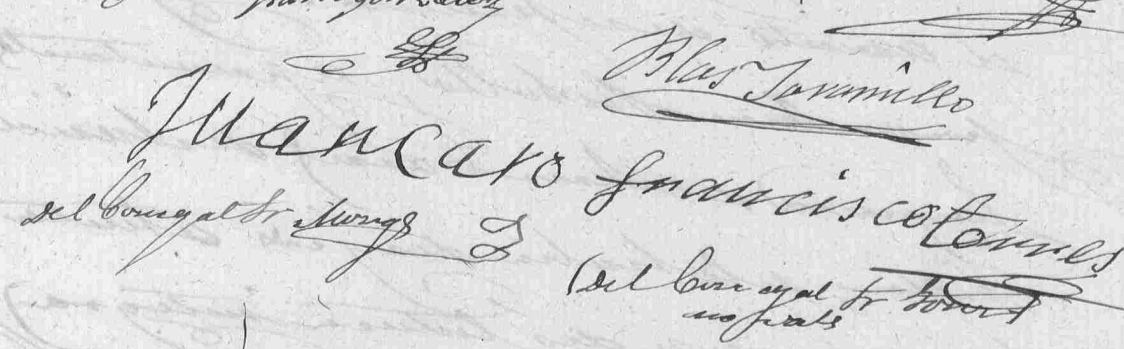 Blas Jaramillo
Juan Caro
Francisco Torres
del Concejal Sr Monge
(del Concejal Sr Torres